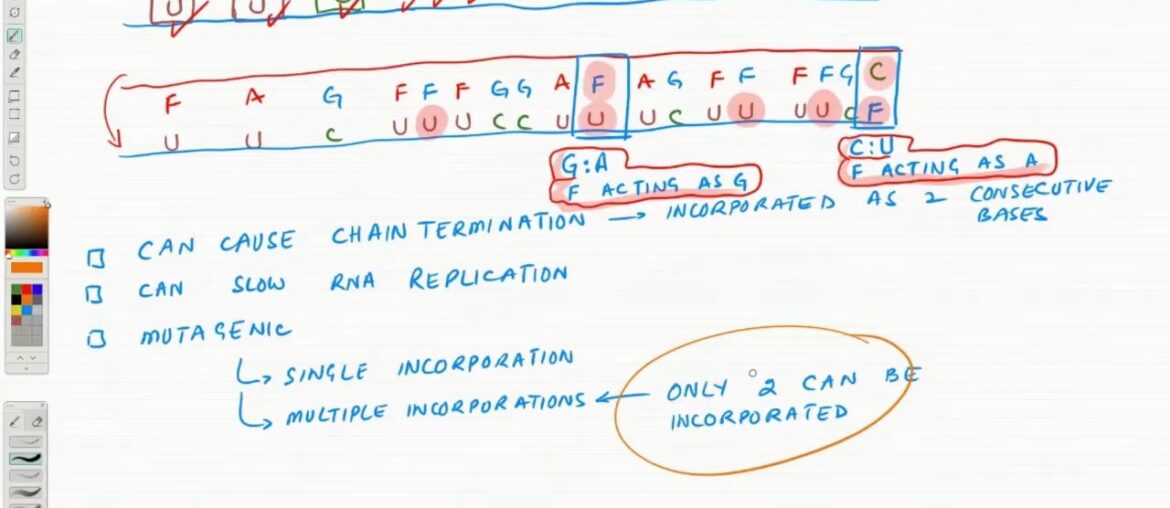 U U
F A G F F F G G A F A G F F F F G C
U U C U U U C C U U U C U U U U C F
G:A
F ACTING AS G
C:U
F ACTING AS A
CAN CAUSE CHAIN TERMINATION → INCORPORATED AS 2 CONSECUTIVE
BASES
CAN SLOW RNA REPLICATION
MUTAGENIC
SINGLE INCORPORATION
MULTIPLE INCORPORATIONS ← ONLY 2 CAN BE
INCORPORATED